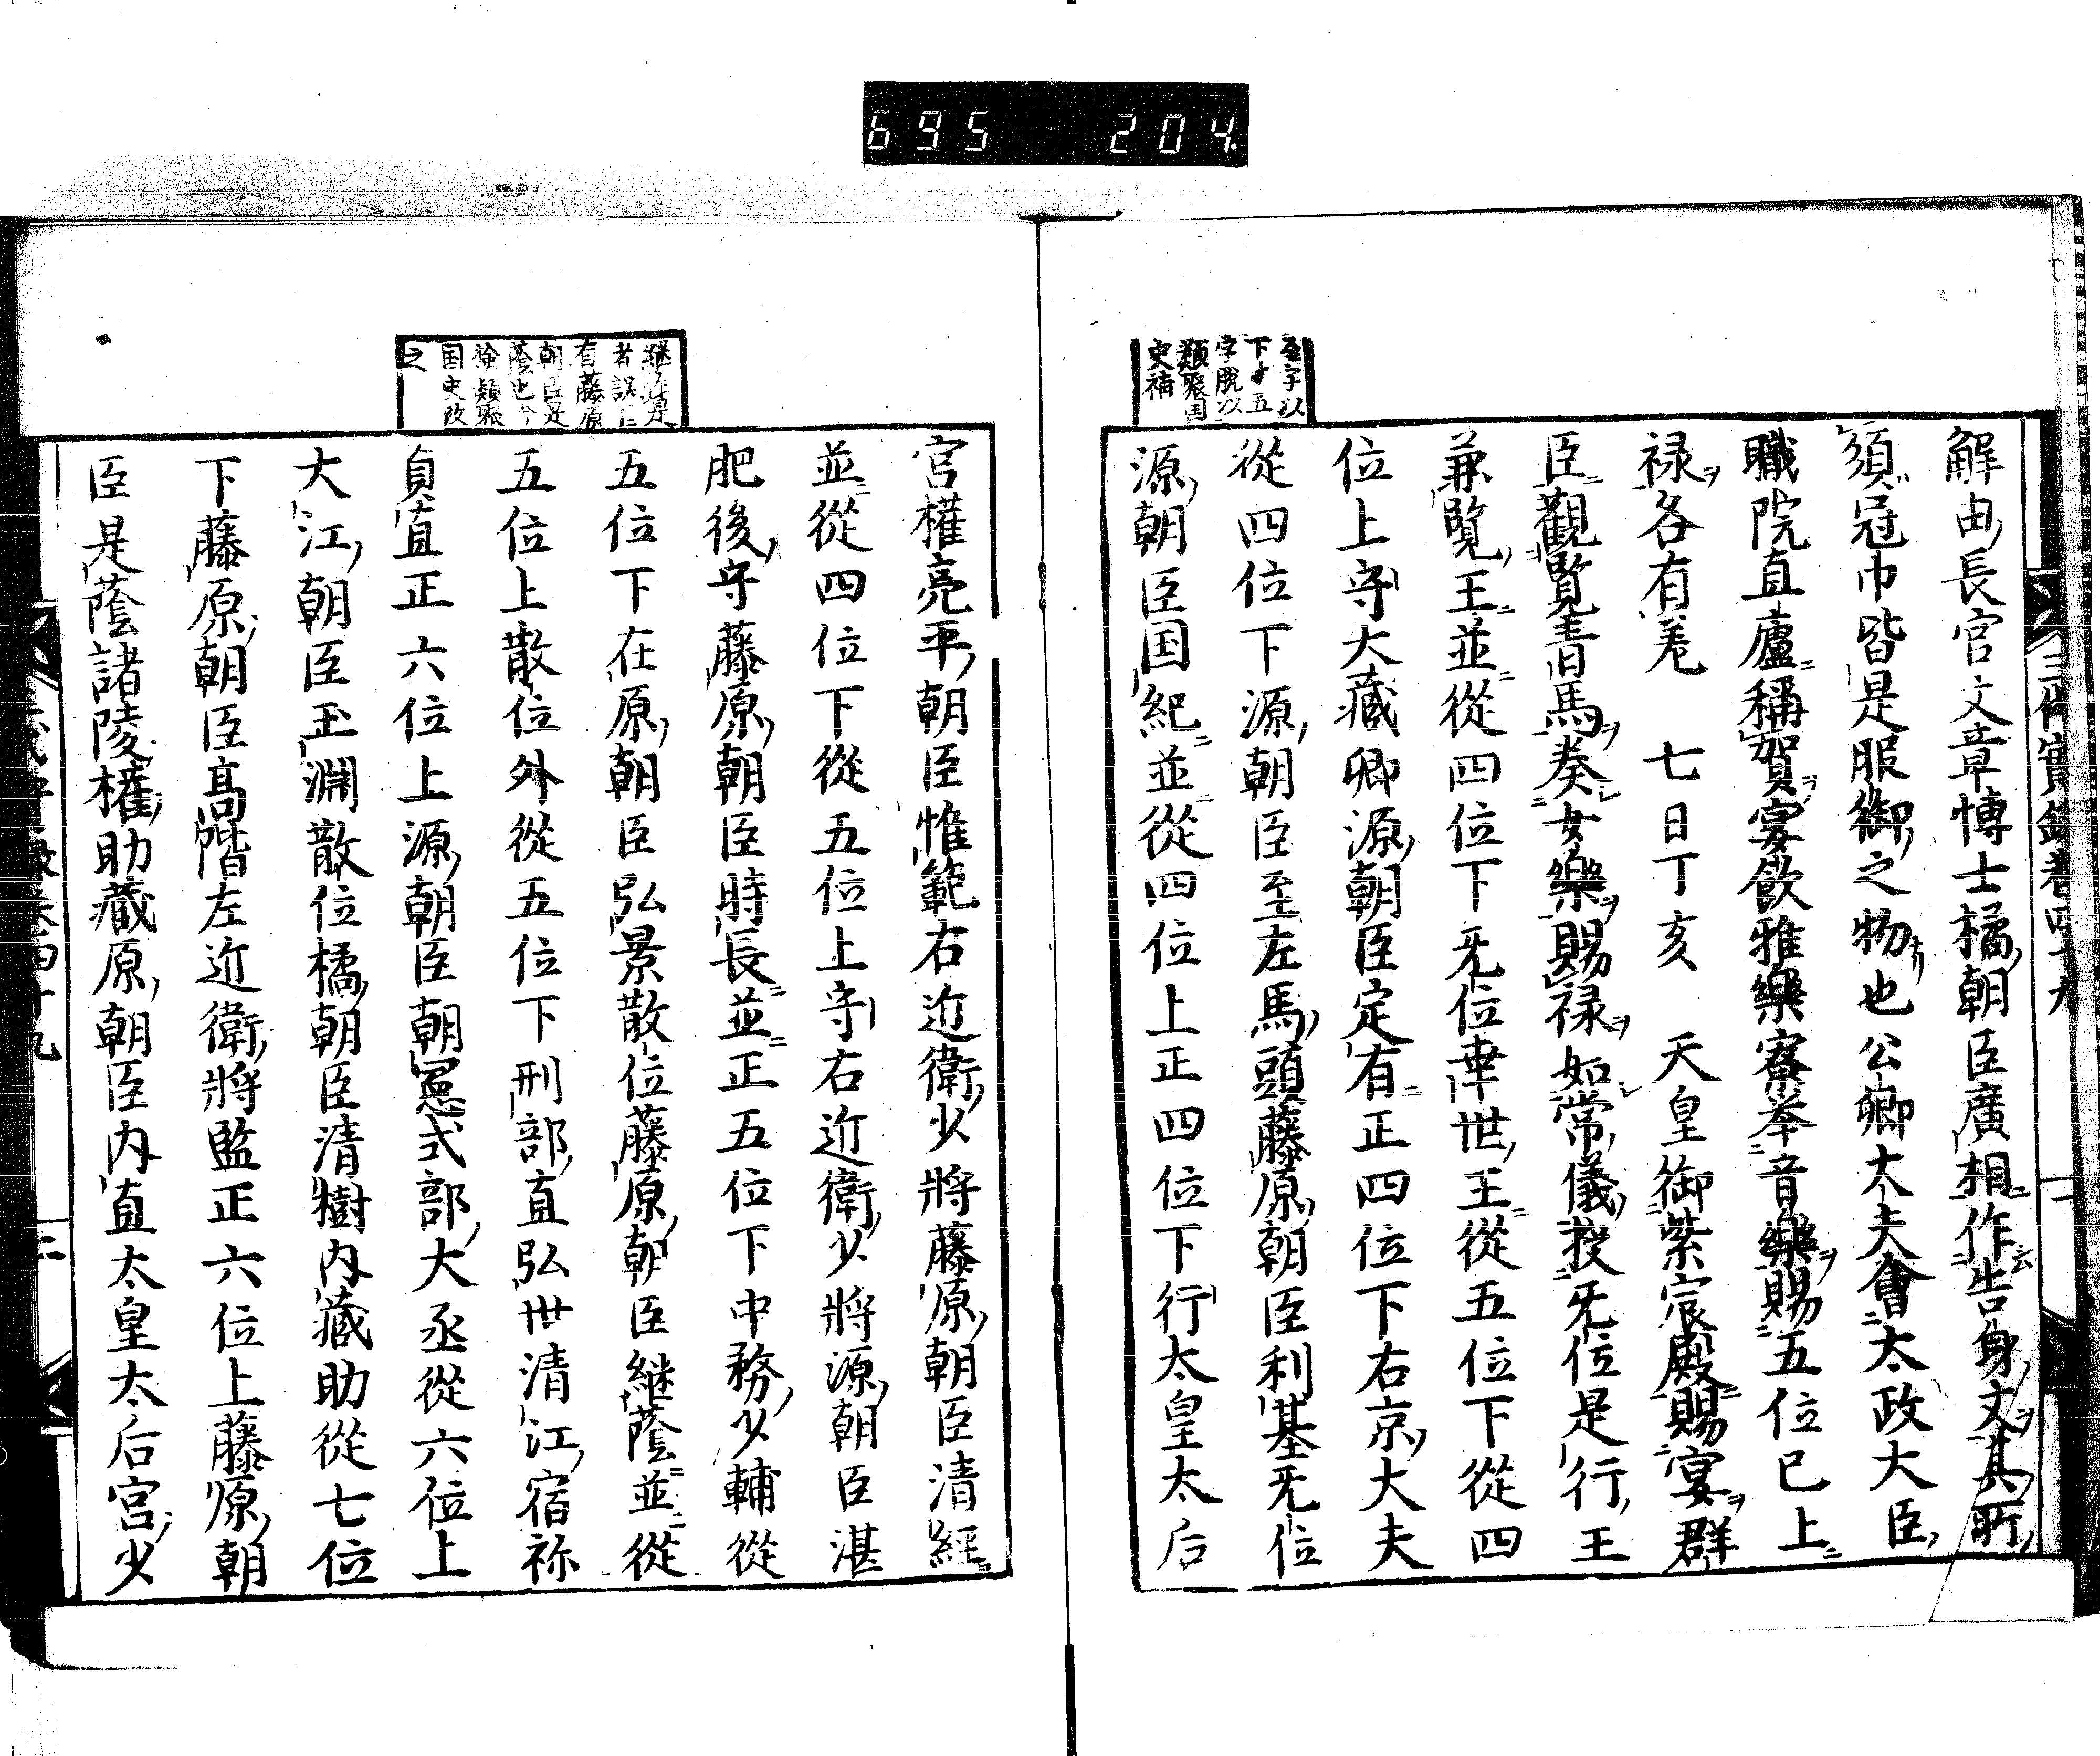 695 204
至字以
下十五
字脱以
類聚国
史補
解由長官文章博士橘朝臣廣相作告身文其所
須冠巾皆是服御之物也公卿大夫會太政大臣
職院直廬稱賀宴飲雅樂寮奉音樂賜五位已上
禄各有差 七日丁亥 天皇御紫宸殿賜宴群
臣觀覧青馬奏女樂賜禄如常儀授无位是行王
兼覧王並從四位下无位聿世王從五位下從四
位上守大藏卿源朝臣定有正四位下右京大夫
從四位下源朝臣至左馬頭藤原朝臣利基无位
源朝臣国紀並從四位上正四位下行太皇太后
者誤仁
有藤原
朝臣是
蔭也今
檢類聚
国史改
之
宮權亮平朝臣惟範右近衛少將藤原朝臣清經
並從四位下從五位上守右近衛少將源朝臣湛
肥後守藤原朝臣時長並正五位下中務少輔從
五位下在原朝臣弘景散位藤原朝臣継蔭並從
五位上散位外從五位下刑部直弘世清江宿祢
貞直正六位上源朝臣朝憲式部大丞從六位上
大江朝臣玉淵散位橘朝臣清樹内藏助從七位
下藤原朝臣高階左近衛將監正六位上藤原朝
臣是蔭諸陵權助藏原朝臣内直太皇太后宮少